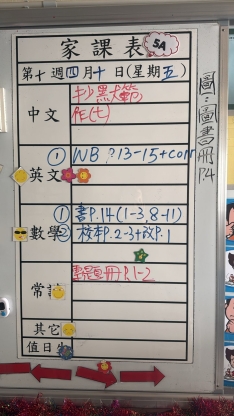 家課表 5A
第十週四月十日(星期五)
中文
抄黑大簿
RE(七)
英文
① WB P.13-15+corr
數學
① 書P.14(1-3,8-11)
② 校本P.2-3+改P.1
常
冊P.1-2
其它
值日生
圖:圖書冊P.4